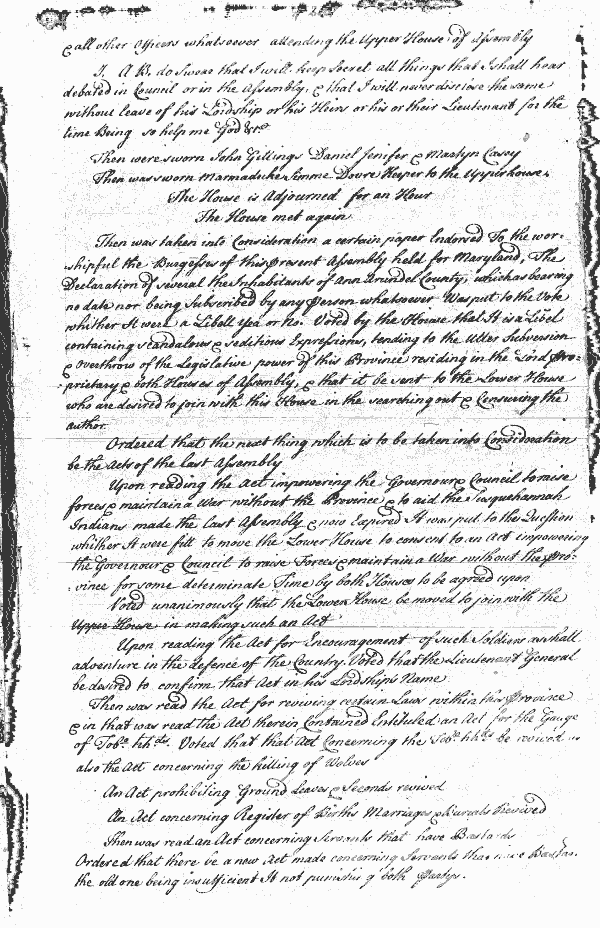 & all other Officers whatsoever attending the Upper House of Assembly
I. A B. do Swear that I will keep Secret all things that I shall hear
debated in Council or in the Assembly, & that I will never disclose the same
without leave of his Lordship or his Heirs or his or their Lieutenant for the
time Being so help me God &ca
Then were sworn John Gittings Daniel Jenifer & Martyn Casey
Then was sworn Marmaduke Simme Doore Keeper to the Upper house.
The House is Adjourned for an Hour
The House met again
Then was taken into Consideration a certain paper Endorsed To the wor-
shipful the Burgesses of this present Assembly held for Maryland, The
Declaration of several the Inhabitants of Ann Arundel County, which as bearing
no date nor being Subscribed by any person whatsoever Was put to the Vote
whither It were a Libell yea or no. Voted by the House that It is a Libel
containing scandalous & seditious Expressions, tending to the Utter Subversion
& Overthrow of the Legislative power of this Province residing in the Lord Pro-
prietary & both Houses of Assembly, & that it be sent to the Lower House
who are desired to join with this House in the searching out & Censuring the
author.
Ordered that the next thing which is to be taken into Consideration
be the Acts of the last Assembly
Upon reading the Act impowering the Governour & Council to raise
forces & maintain a War without the Province & to aid the Susquehannah
Indians made the Last Assembly & now Expired It was put to the Question
whither It were fitt to move the Lower House to consent to an Act impowering
the Governour & Council to raise Forces & maintain a War without the Pro-
vince for some determinate Time by both Houses to be agreed upon
Voted unanimously that the Lower House be moved to join with the
Upper House in making such an Act
Upon reading the Act for Encouragement of such Soldiers as shall
adventure in the defence of the Country. Voted that the Lieutenant General
be desired to confirm that Act in his Lordship's Name
Then was read the Act for reviving certain Laws within this Province
& in that was read the Act therein Contained Entituled an Act for the Gauge
of Tobo. hhds. Voted that that Act Concerning the Tobo. hhds be revived
also the Act concerning the killing of Wolves
An Act prohibiting Ground Leaves & Seconds revived
An Act concerning Register of Births Marriages & Burials Revived
Then was read an Act concerning servants that have Bastards
Ordered that there be a new Act made concerning Servants that have Bastas.
the old one being insufficient It not punishing both partys.